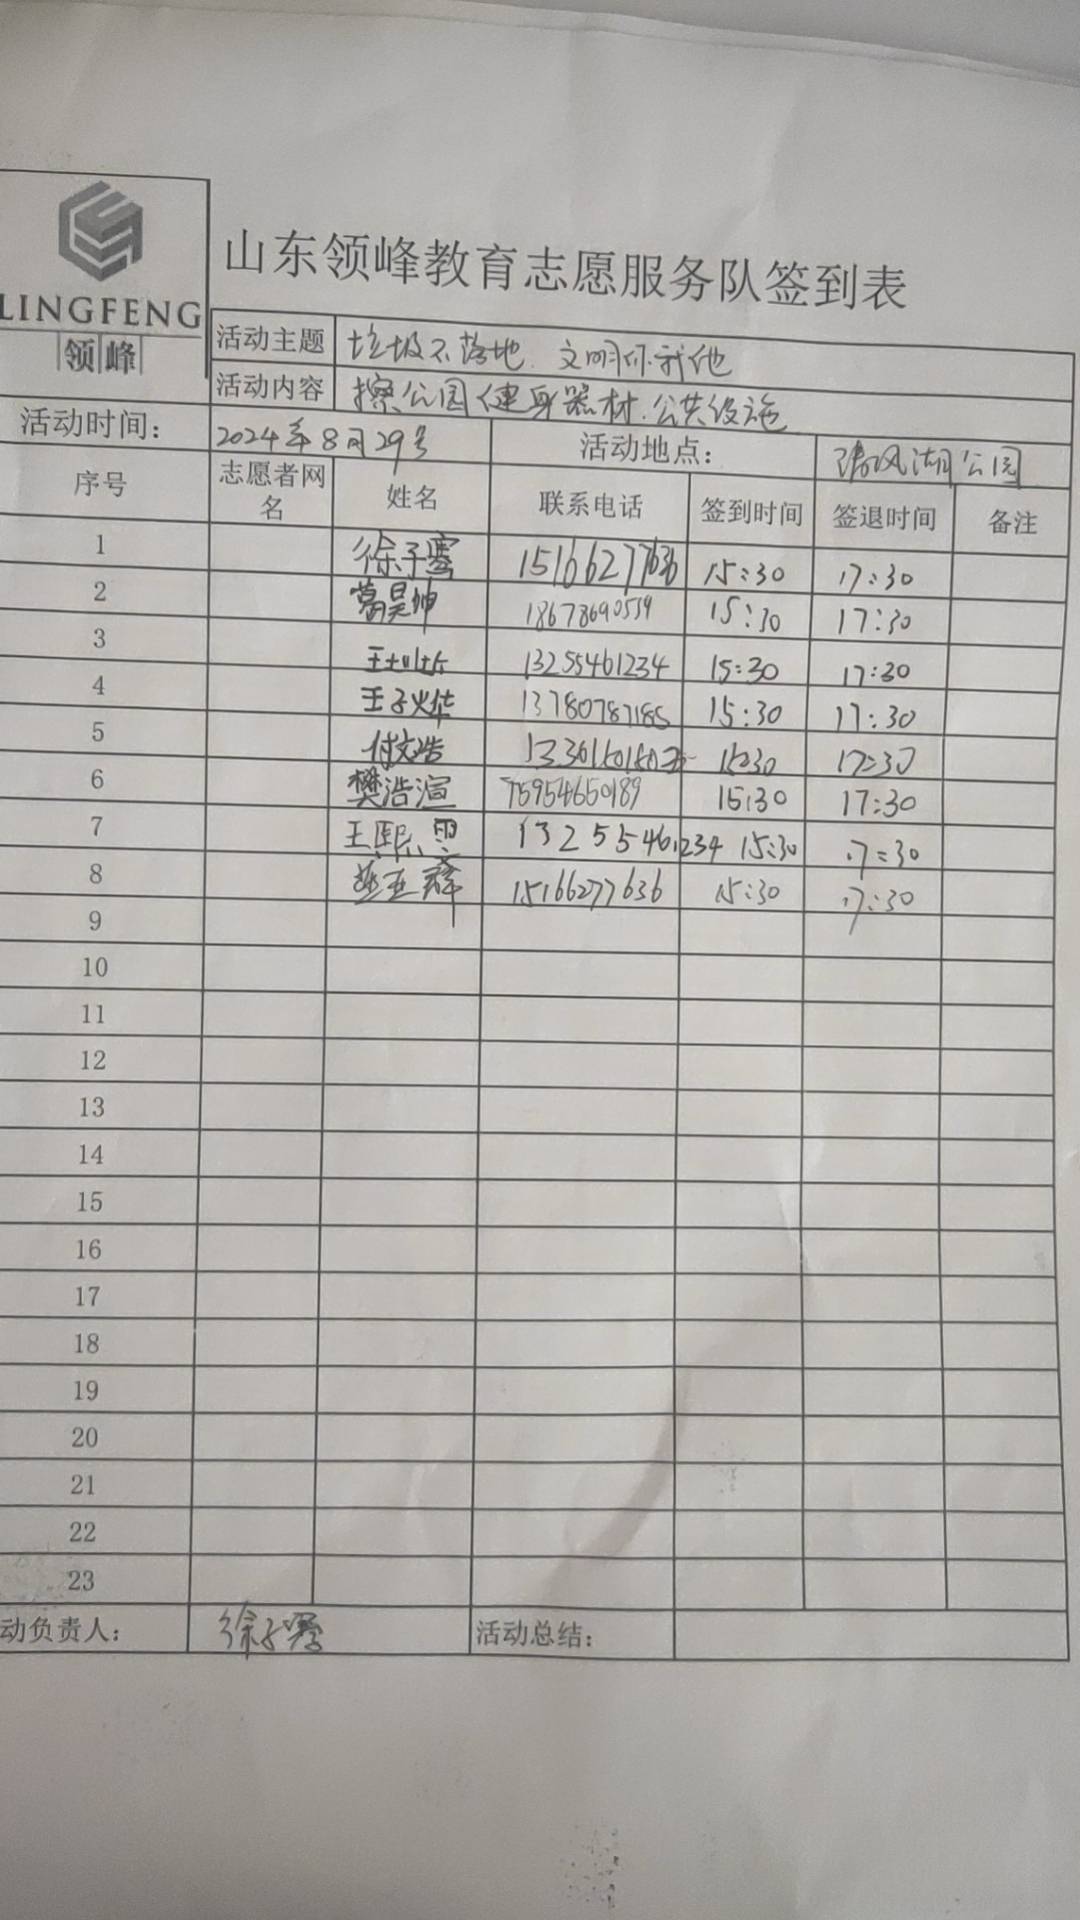 LINGFENG
领峰
山东领峰教育志愿服务队签到表
活动主题 垃圾不落地.文明你我他
活动内容 擦公园健身器材.公共设施
活动时间： 2024年8月29号 活动地点： 清风湖公园
序号 志愿者网名 姓名 联系电话 签到时间 签退时间 备注
1 徐子骞 15166277636 15:30 17:30
2 葛昊坤 18678690539 15:30 17:30
3 13255461234 15:30 17:30
4 王子烨 13780787185 15:30 17:30
5 付文浩 15:30 17:30
6 樊浩渲 15954650189 15:30 17:30
7 王熙雯 13255461234 15:30 17:30
8 15166277636 15:30 17:30
9
10
11
12
13
14
15
16
17
18
19
20
21
22
23
动负责人： 徐子骞 活动总结：